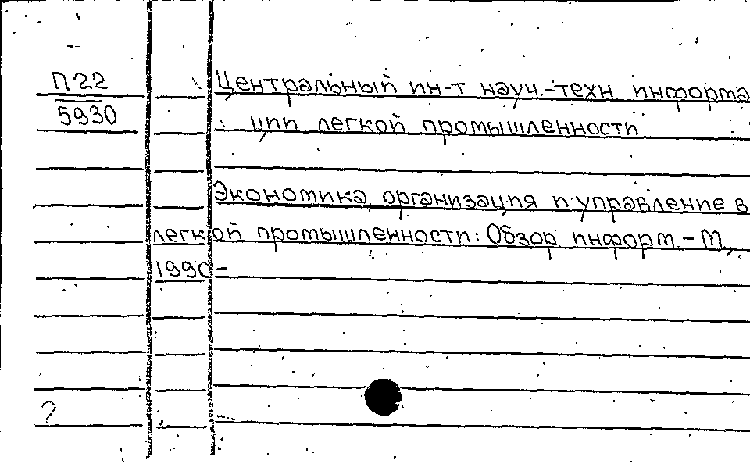 П22
5930
Центральный ин-т науч.-техн информа
ции легкой промышленности
Экономика организация и управление в
легкой промышленности: Обзор. информ. - М.,
1990-
2